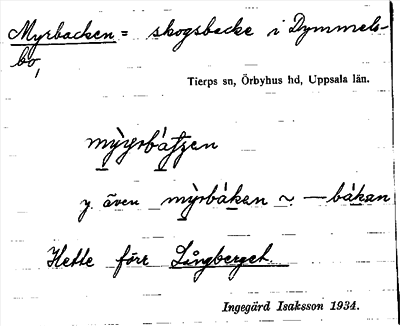 Myrbacken = skogsbacke i Dymmels-
bo,
Tierps sn, Örbyhus hd, Uppsala län.
mỳrbáʃʒen
y. även mỳrbákan ~ —bákan
Hette förr Långberget.
Ingegärd Isaksson 1934.